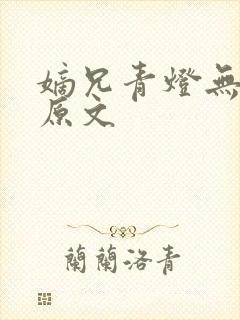 嫡兄青燈無
原文
蘭蘭洛青